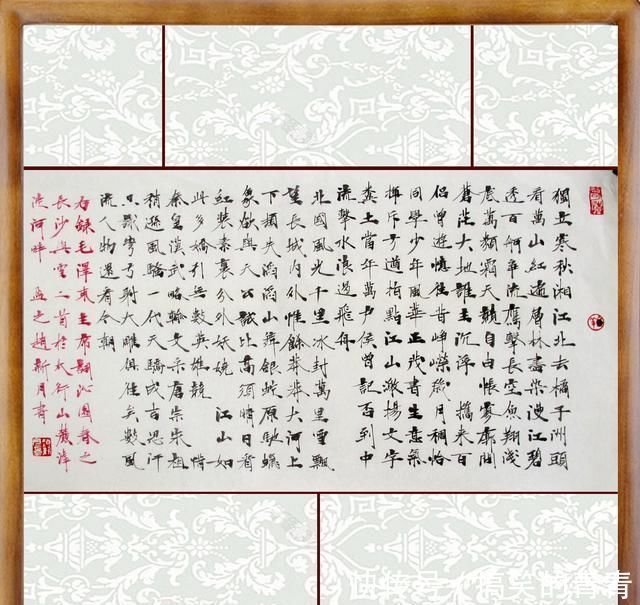 獨立寒秋湘江北去橘子洲頭
看萬山紅遍層林盡染漫江碧
透百舸爭流鷹擊長空魚翔淺
底萬類霜天競自由悵寥廓問
蒼茫大地誰主沉浮 攜來百
侶曾遊憶往昔崢嶸歲月稠恰
同學少年風華正茂書生意氣
揮斥方遒指點江山激揚文字
糞土當年萬戶侯曾記否到中
流擊水浪遏飛舟
北國風光千里冰封萬里雪飄
望長城內外惟餘莽莽大河上
下頓失滔滔山舞銀蛇原馳蠟
象欲與天公試比高須晴日看
紅裝素裹分外妖嬈 江山如
此多嬌引無數英雄競 惜
秦皇漢武略輸文采唐宗宋祖
稍遜風騷一代天驕成吉思汗
只識彎弓射大雕俱往矣數風
流人物還看今朝
右錄毛澤東主席詞沁園春之
長沙與雪二首於太行山麓漳
河畔 趙新月書
快传号/搞笑的青青